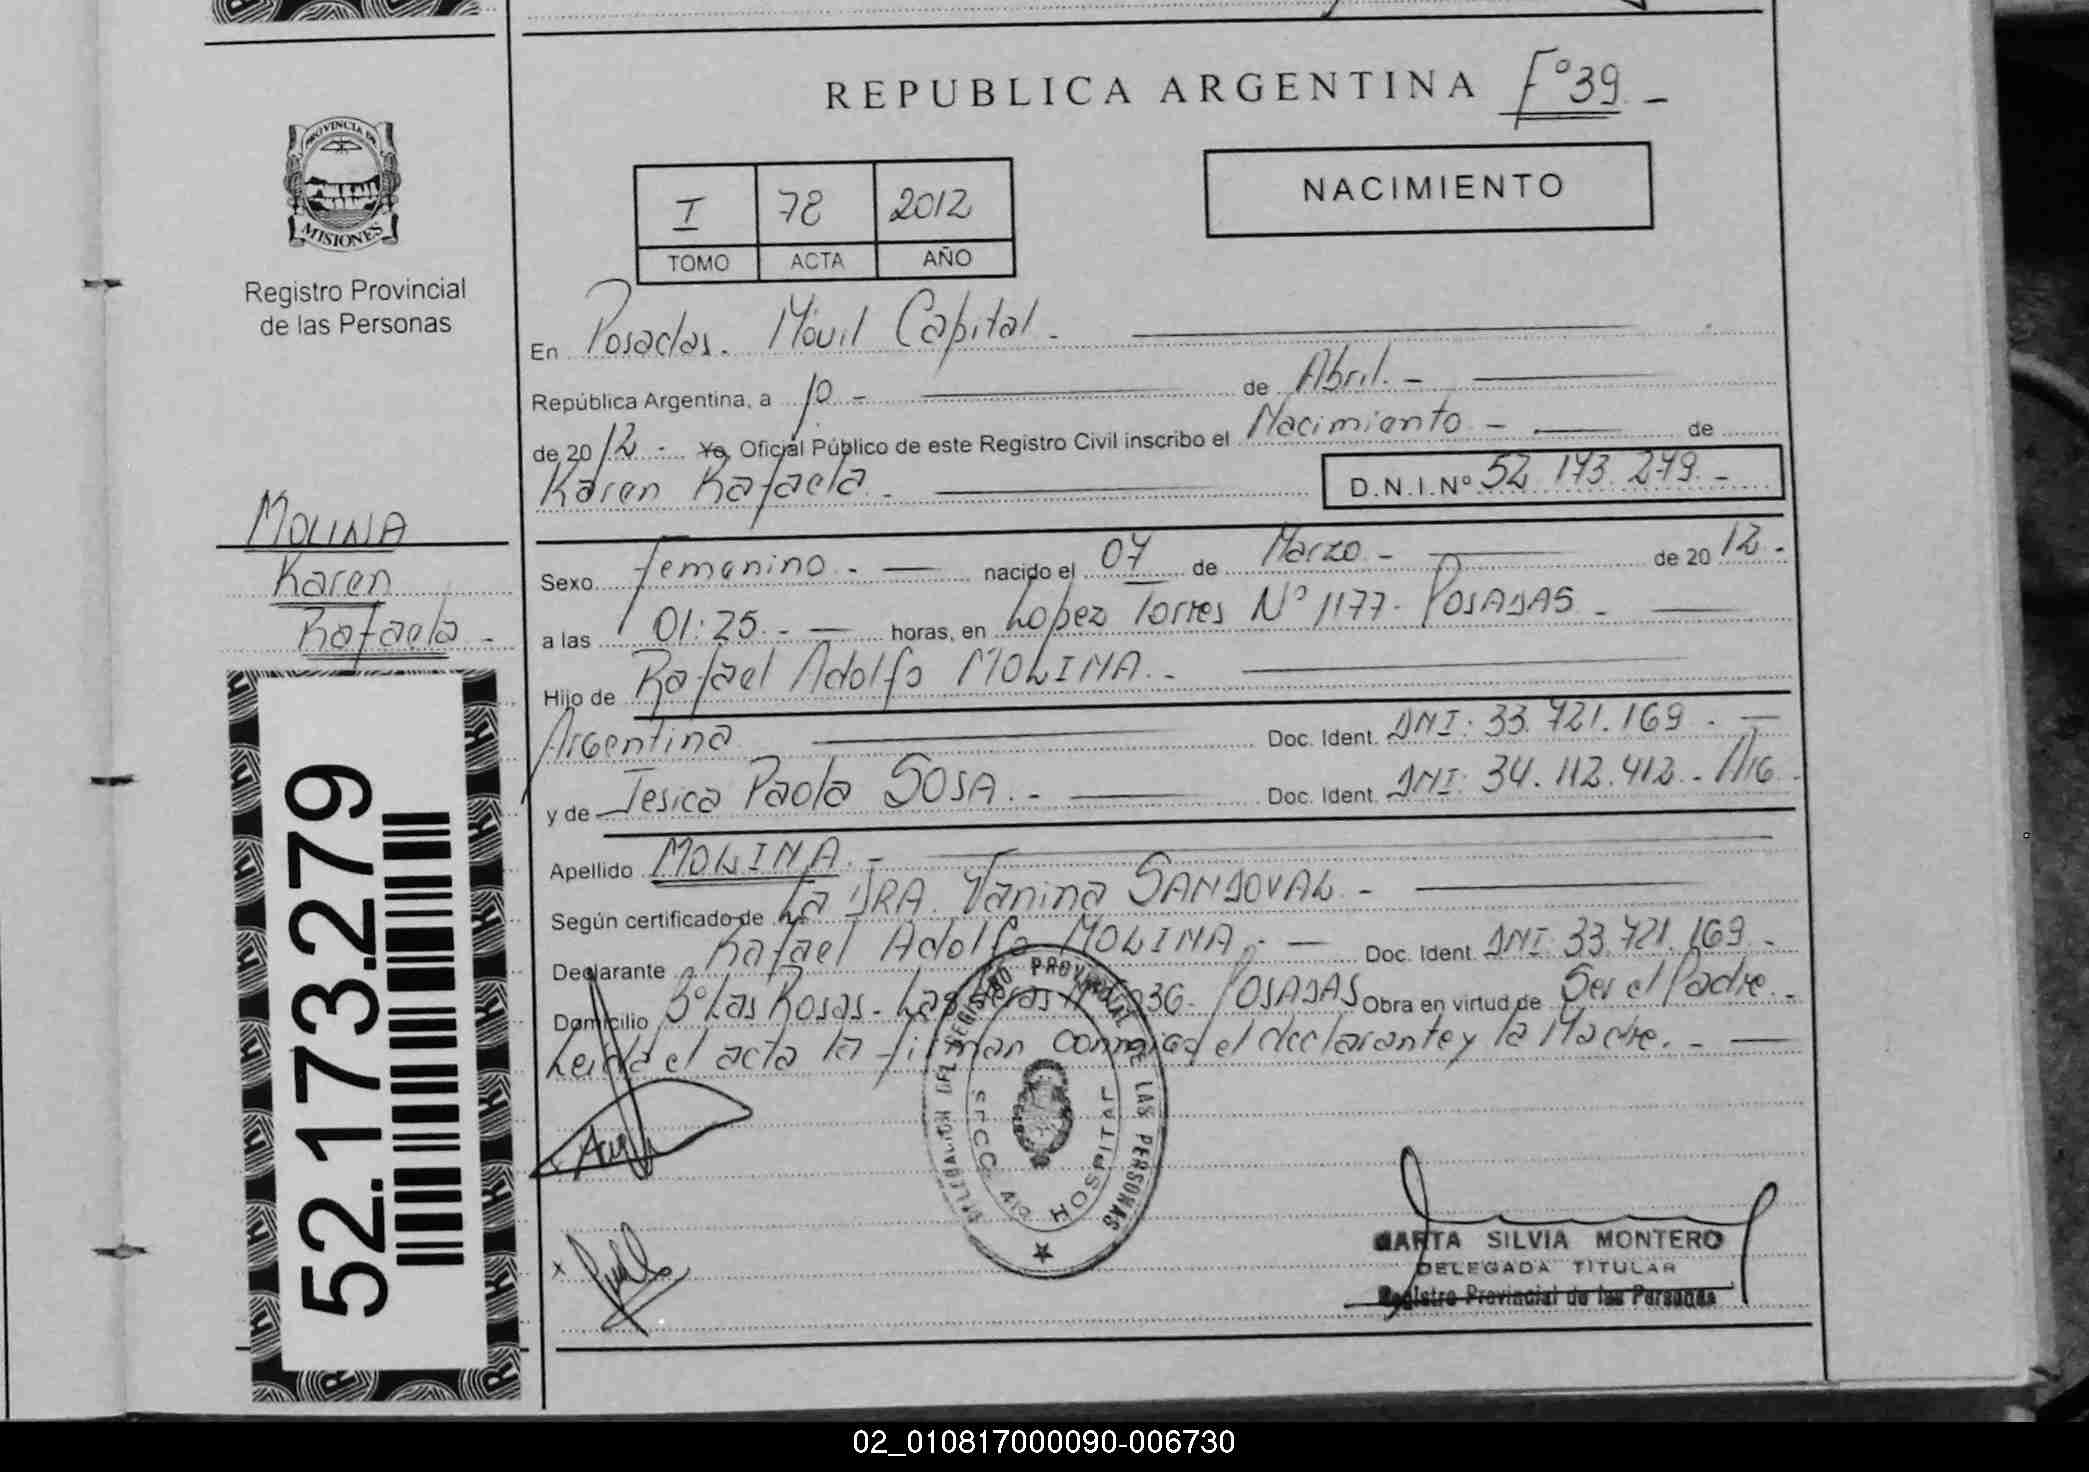 REPUBLICA ARGENTINA Fº 39.-
PROVINCIA DE
MISIONES
Registro Provincial
de las Personas
I 78 2012
TOMO ACTA AÑO
NACIMIENTO
En Posadas. Móvil Capital.-
República Argentina, a 1º.- de Abril.-
de 2012.- Yo, Oficial Público de este Registro Civil inscribo el Nacimiento.- de
Karen Rafaela.- D.N.I.Nº 52.173.279.-
MOLINA
Karen
Rafaela.-
Sexo femenino.- nacido el 07 de Marzo.- de 2012.-
a las 01:25.- horas, en Lopez Torres Nº 1177. POSADAS.-
Hijo de Rafael Adolfo MOLINA.-
Argentina Doc. Ident. DNI: 33.721.169.-
y de Jesica Paola SOSA.- Doc. Ident. DNI: 34.112.412.- Arg.
Apellido MOLINA.-
Según certificado de La DRA. Yanina SANDOVAL.-
Declarante Rafael Adolfo MOLINA.- Doc. Ident. DNI: 33.721.169.-
Domicilio Bº Las Rosas- Las Nº POSADAS Obra en virtud de Ser el Padre.-
Leida el acta la firman conmigo el declarante y la Madre.-
52.173.279
DELEGACION DEL REGISTRO PROVINCIAL DE LAS PERSONAS
SECC. 4ta HOSPITAL
MARTA SILVIA MONTERO
DELEGADA TITULAR
Registro Provincial de las Personas
02_010817000090-006730